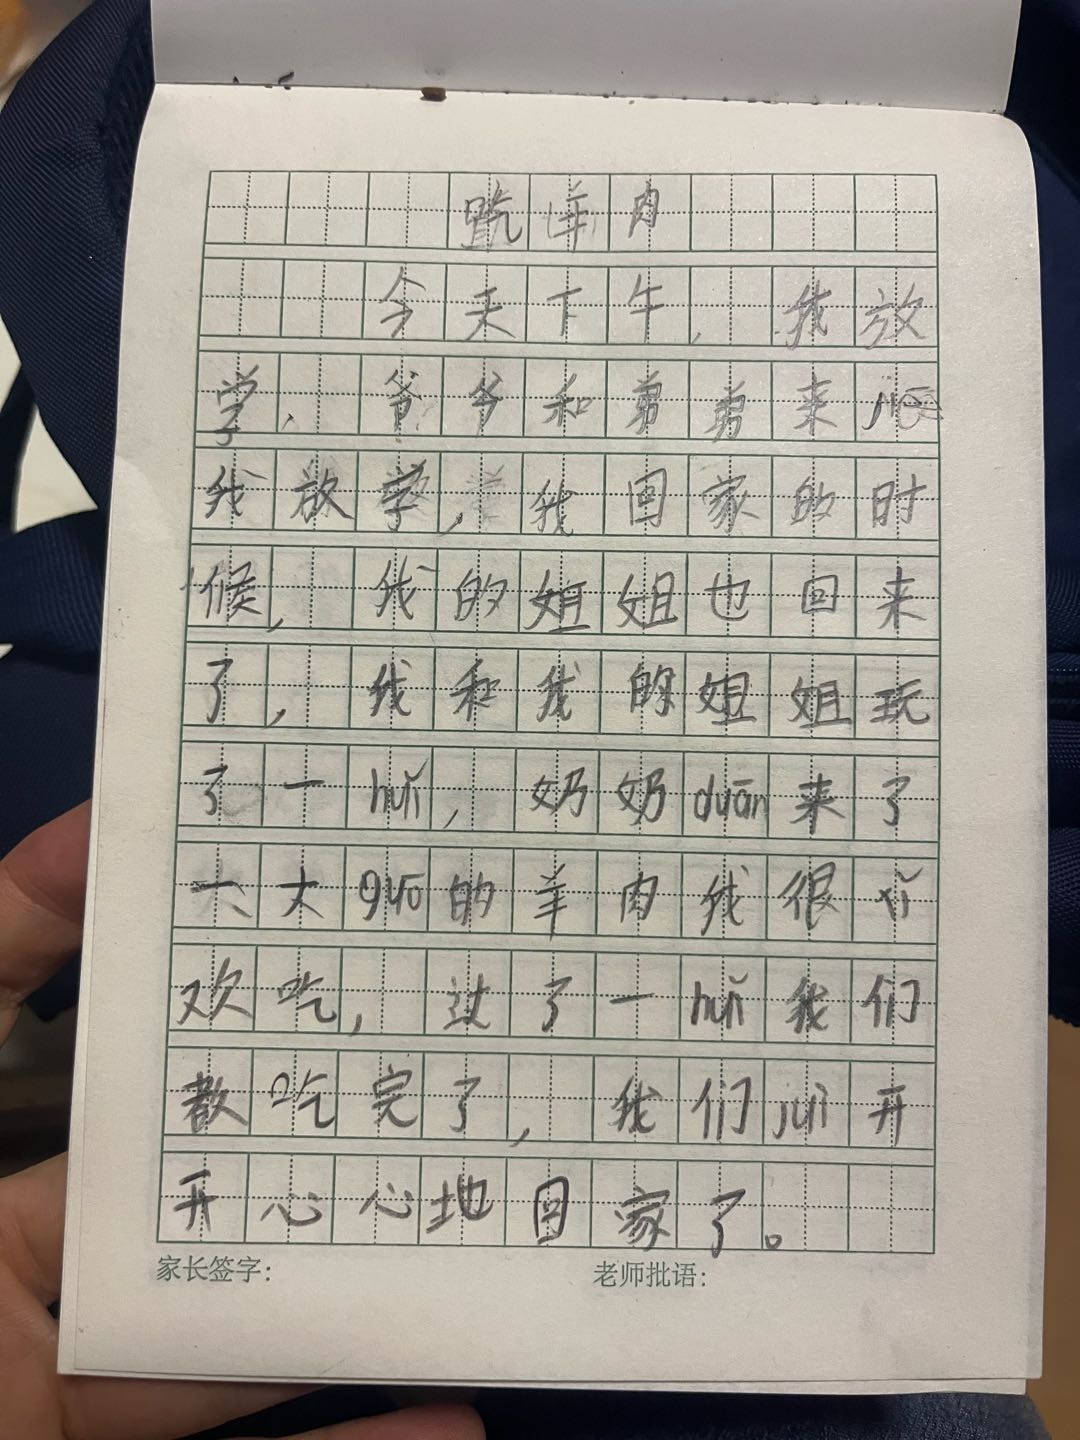 吃羊肉
今天下午，我放
学，爷爷和弟弟来jiē
我放学，我回家的时
候，我的姐姐也回来
了，我和我的姐姐玩
了一huǐ，奶奶duān来了
一大guō的羊肉我很xǐ
欢吃，过了一huǐ我们
都吃完了，我们juì开
开心心地回家了。
家长签字：
老师批语：